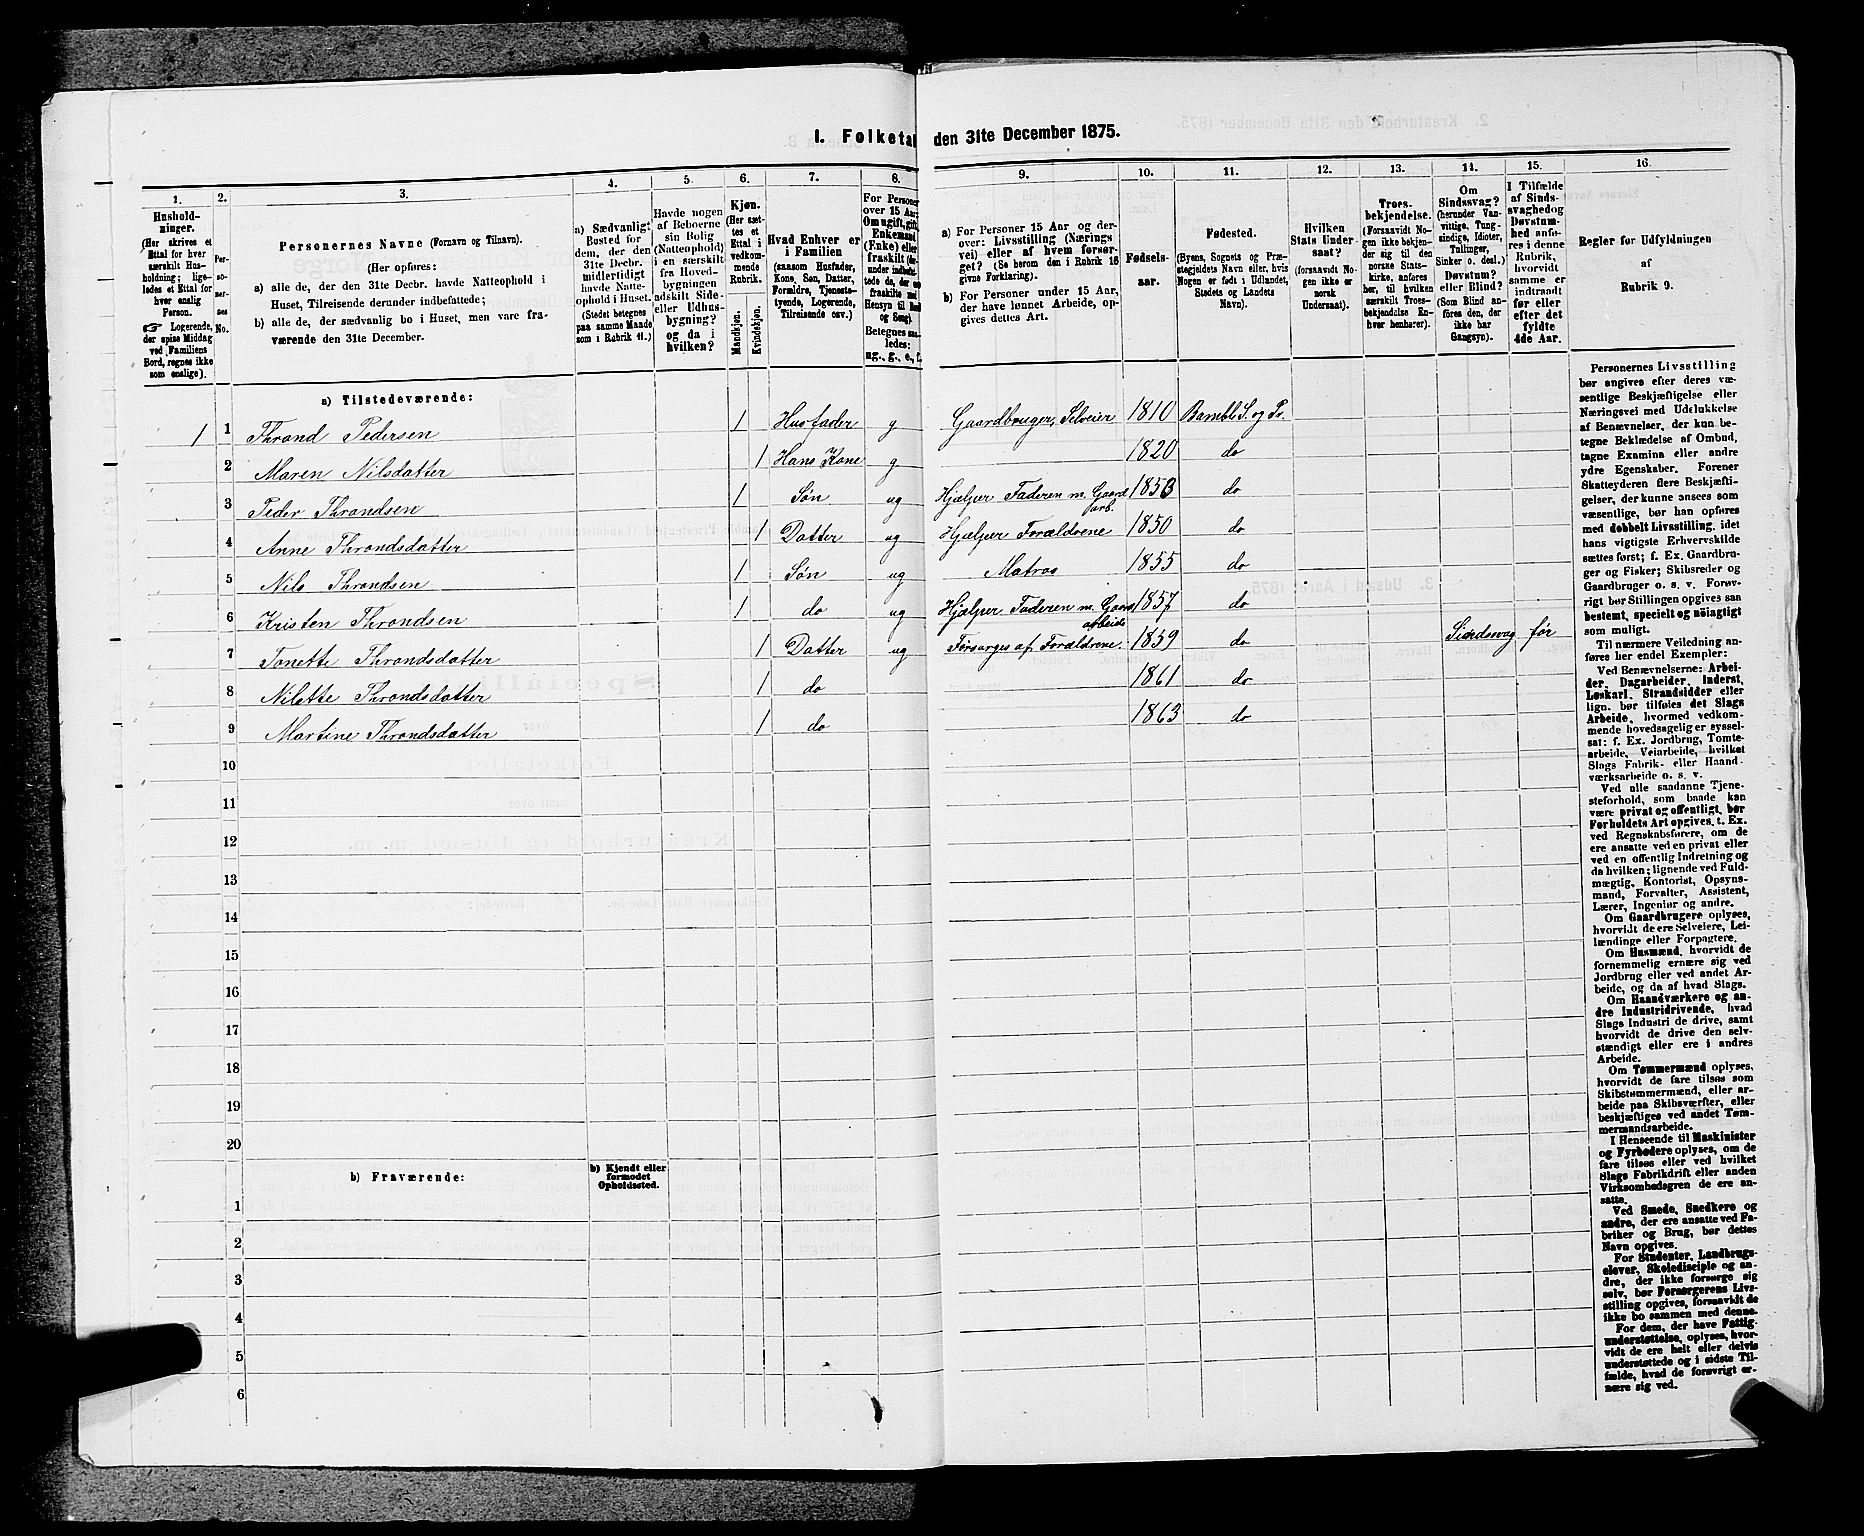 I. Folketal den 31te December 1875.
1. 2. 3. 4. 5. 6. 7. 8. 9. 10. 11. 12. 13. 14. 15. 16.
Hushold-
ninger.
(Her skrives et
Ettal for hver
særskilt Hus-
holdning; lige-
ledes et Ettal for
hver enslig
Person.
☞ Logerende,
der spise Middag
ved Familiens
Bord, regnes ikke
som enslige).
Per-
so-
ner-
nes
No.
Personernes Navne (Fornavn og Tilnavn).
(Her opføres:
a) alle de, der den 31te Decbr. havde Natteophold i
Huset, Tilreisende derunder indbefattede;
b) alle de, der sædvanlig bo i Huset, men vare fra-
værende den 31te December.
a) Sædvanligt
Bosted for
dem, der den
31te Decbr.
midlertidigt
havde Natte-
ophold i Huset.
(Stedet betegnes
paa samme Maade
som i Rubrik 11.)
Havde nogen
af Beboerne
sin Bolig
(Natteophold)
i en særskilt
fra Hoved-
bygningen
adskilt Side-
eller Udhus-
bygning?
og da i
hvilken?
Kjøn.
(Her sæt-
tes et
Ettal i
vedkom-
mende
Rubrik.
Mandkjøn.
Kvindekjøn.
Hvad Enhver er
i Familien
(saasom Husfader,
Kone, Søn, Datter,
Forældre, Tjeneste-
tyende, Logerende,
Tilreisende osv.)
For Personer
over 15 Aar:
Om ugift, gift,
Enkemand
(Enke) eller
fraskilt
Betegnes saa-
ledes:
ug., g., e., f.
a) For Personer 15 Aar og der-
over: Livsstilling (Nærings-
vei) eller af hvem forsør-
get? (Se herom den i Rubrik 16
givne Forklaring).
b) For Personer under 15 Aar,
der have lønnet Arbeide, op-
gives dettes Art.
Fødsels-
aar.
Fødested.
(Byens, Sognets og Præ-
stegjeldets Navn eller, hvis
Nogen er født i Udlandet,
Stedets og Landets
Navn).
Hvilken
Stats Under-
saat?
(forsaavidt No-
gen ikke er
norsk
Undersaat).
Troes-
bekjendelse.
(Forsaavidt No-
gen ikke bekjen-
der sig til den
norske Stats-
kirke, anføres
her, til hvilken
særskilt Troes-
bekjendelse En-
hver henhører).
Om
Sindssvag?
(herunder Van-
vittige, Tung-
sindige, Idioter,
Tullinger,
Sinker o. desl.)
Døvstum?
eller Blind?
(Som Blind an-
føres den, der
ikke har
Gangsyn).
I Tilfælde
af Sinds-
svaghed og
Døvstum-
hed anfø-
res i denne
Rubrik,
hvorvidt
samme er
indtraadt
før eller
efter det
fyldte
4de Aar.
Regler for Udfyldningen
af
Rubrik 9.
a) Tilstedeværende:
1 1 Thrond Pedersen 1 Husfader g Gaardbruger, Selveier 1810 Bamble S. og Pr.
2 Maren Nilsdatter 1 Hans Kone g 1820 do
3 Peder Throndsen 1 Søn ug Hjælper Faderen m. Gaards arb. 1853 do
4 Anne Throndsdatter 1 Datter ug Hjælper Forældrene 1850 do
5 Nils Throndsen 1 Søn ug Matros 1855 do
6 Kristen Throndsen 1 do ug Hjælper Faderen m. Gaards arbeide 1857 do
7 Tonette Throndsdatter 1 Datter ug Forsørges af Forældrene. 1859 do Sindssvag før
8 Nilette Throndsdatter 1 do 1861 do
9 Martine Throndsdatter 1 do 1863 do
10
11
12
13
14
15
16
17
18
19
20
b) Fraværende:
b) Kjendt eller
formodet
Opholdssted.
1
2
3
4
5
6
Personernes Livsstilling
bør angives efter deres væ-
sentlige Beskjæftigelse eller
Næringsvei med Udelukkelse
af Benævnelser, der kun be-
tegne Beklædelse af Ombud,
tagne Examina eller andre
ydre Egenskaber. Forener
Skatteyderen flere Beskjæfti-
gelser, der kunne ansees som
væsentlige, bør han opføres
med dobbelt Livsstilling, idet
hans vigtigste Erhvervskilde
sættes først; f. Ex. Gaardbru-
ger og Fisker; Skibsreder og
Gaardbruger o. s. v. Forøv-
rigt bør Stillingen opgives saa
bestemt, specielt og nöiagtigt
som muligt.
Til nærmere Veiledning an-
føres her endel Exempler:
Ved Benævnelserne: Arbei-
der, Dagarbeider, Inderst,
Løskarl, Strandsidder eller
lign. bør tilføies det Slags
Arbeide, hvormed vedkom-
mende hovedsagelig er syssel-
sat: f. Ex. Jordbrug, Tomte-
arbeide, Veiarbeide, hvilket
Slags Fabrik- eller Haand-
værksarbeide o. s. v.
Ved alle saadanne Tjene-
steforhold, som baade kan
være privat og offentligt, bør
Forholdets Art opgives, t. Ex.
ved Regnskabsførere, om de
ere ansatte ved en privat eller
ved en offentlig Indretning og
da hvilken; lignende ved Fuld-
mægtig, Kontorist, Opsyns-
mand, Forvalter, Assistent,
Lærer, Ingeniør og andre.
Om Gaardbrugere oplyses,
hvorvidt de ere Selveiere, Lei-
lændinge eller Forpagtere.
Om Husmænd, hvorvidt de
fornemmelig ernære sig ved
Jordbrug eller ved andet Ar-
beide, og da af hvad Slags.
Om Haandværkere og an-
dre Industridrivende, hvad
Slags Industri de drive, samt
hvorvidt de drive den selv-
stændigt eller ere i andres
Arbeide.
Om Tømmermænd oplyses,
hvorvidt de fare tilsøs som
Skibstømmermænd, eller ar-
beide paa Skibsværfter, eller
beskjæftiges ved andet Tøm-
mermandsarbeide.
I Henseende til Maskinister
og Fyrbødere oplyses, om de
fare tilsøs eller ved hvilket
Slags Fabrikdrift eller anden
Virksomhedsgren de ere an-
satte.
Ved Smede, Snedkere og
andre, der ere ansatte ved Fa-
briker og Brug, bør dettes
Navn opgives.
For Studenter, Landbrugs-
elever, Skoledisciple og an-
dre, der ikke forsørge sig
selv, bør Forsørgerens Livs-
stilling opgives, forsaavidt de
ikke bo sammen med denne.
For dem, der have Fattig-
understøttelse, oplyses, hvor-
vidt de ere helt eller delvis
understøttede og i sidste Til-
fælde, hvad de forøvrigt er-
nære sig ved.